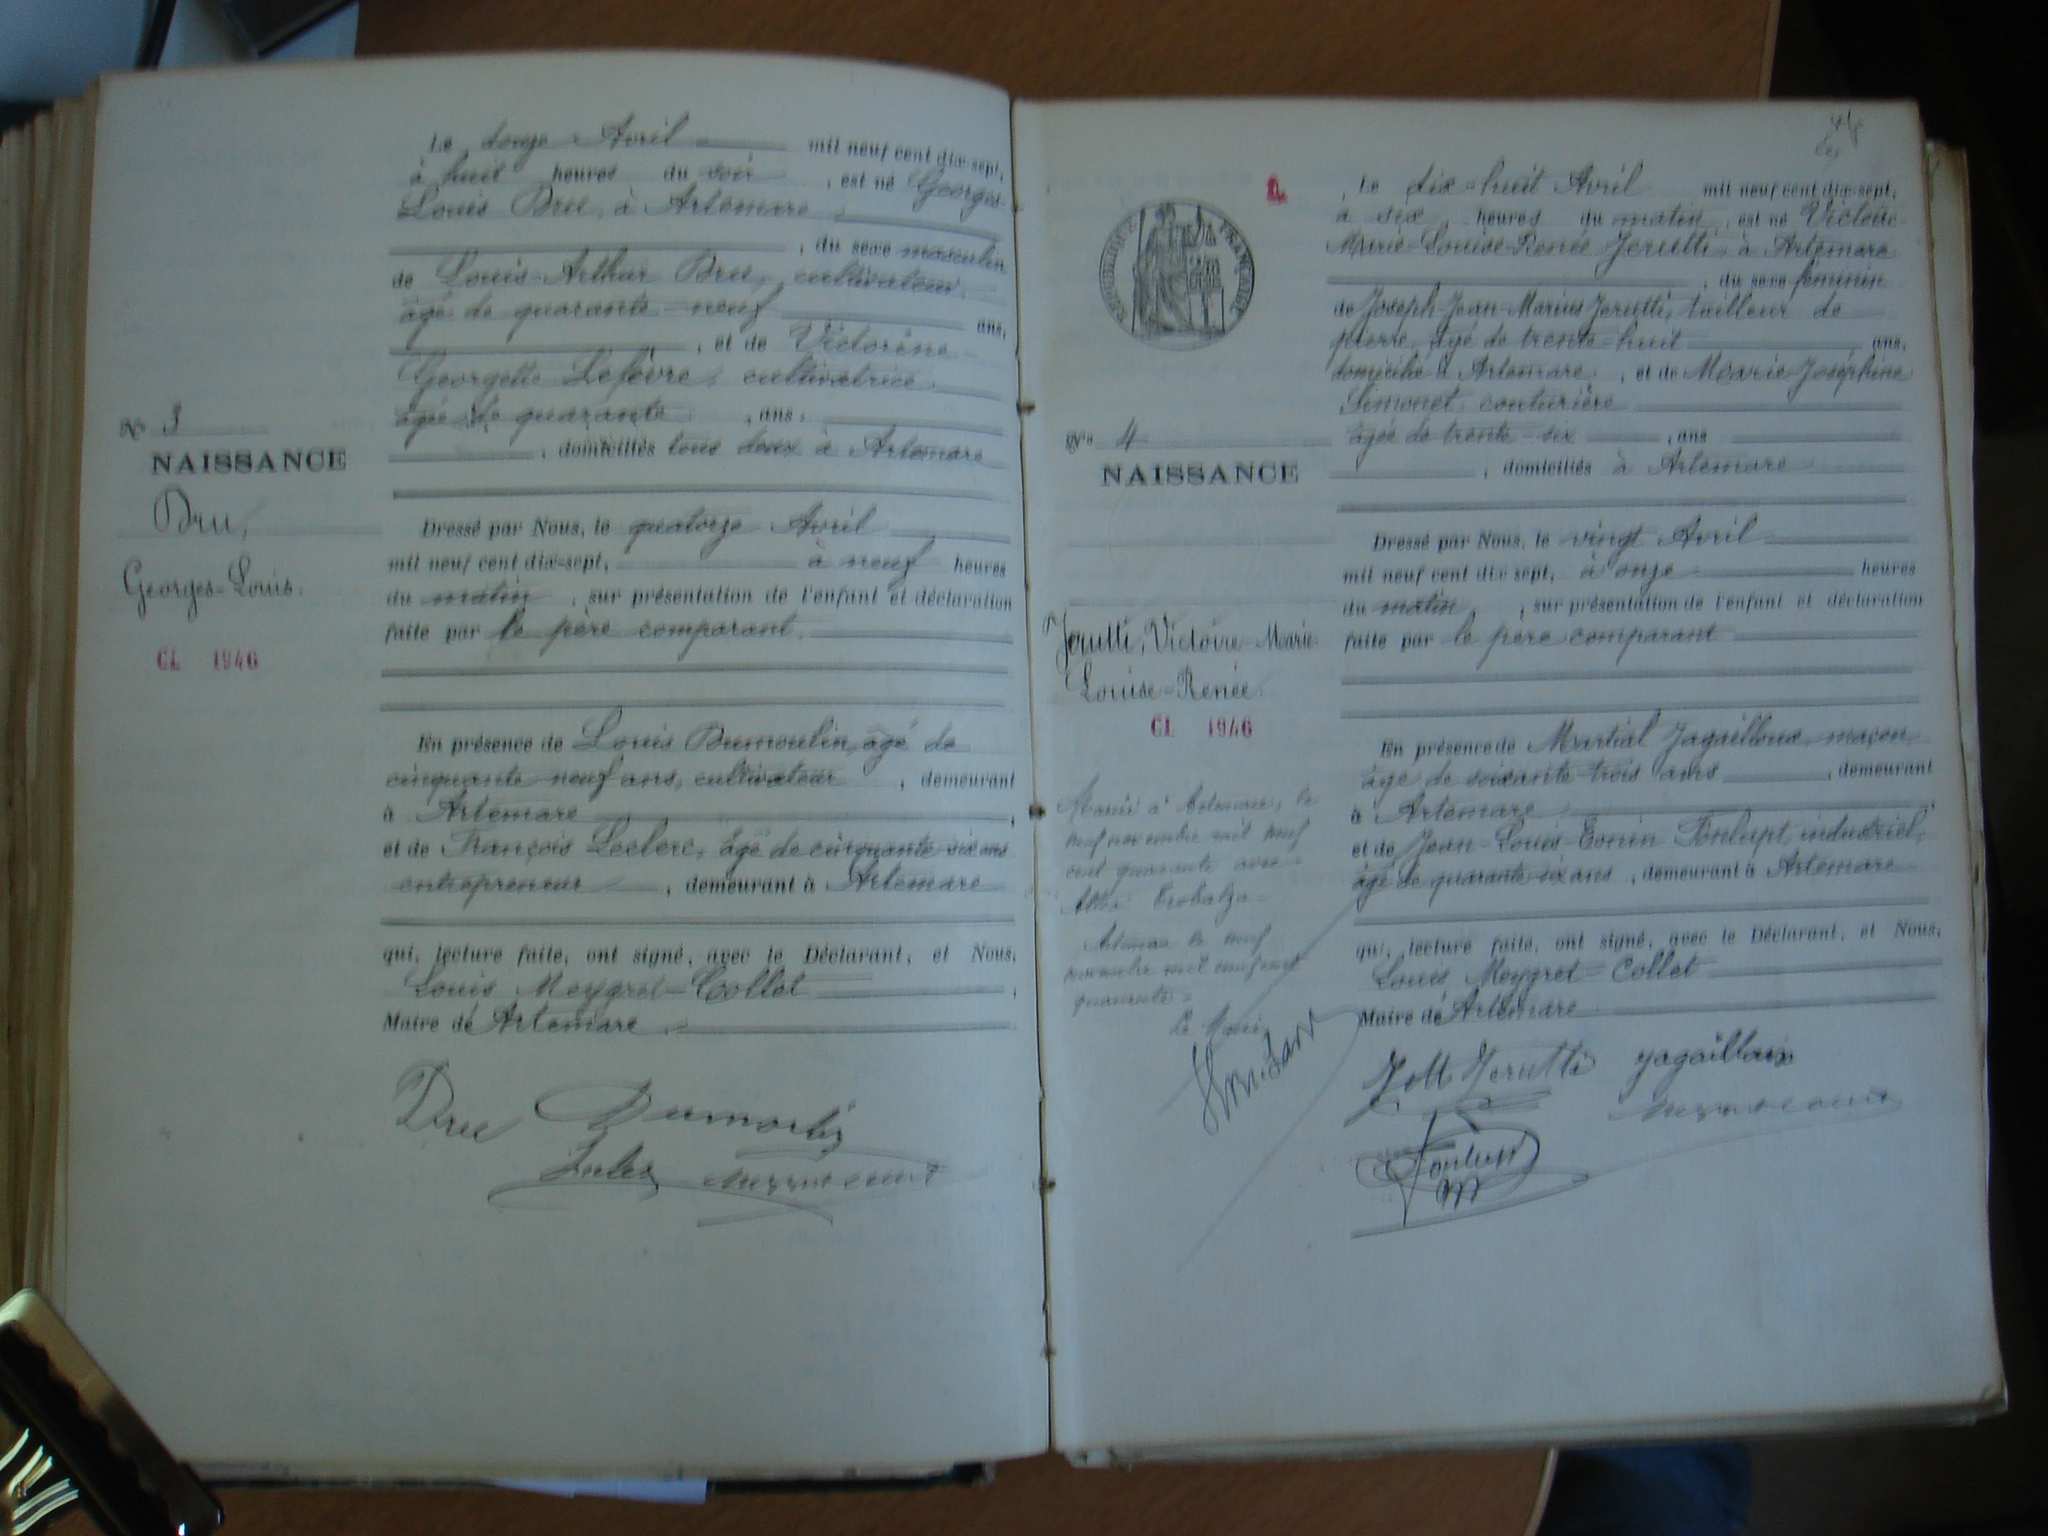 Le douze Avril mil neuf cent dix-sept,
à huit heures du soir, est né Georges-
Louis Bru, à Artemare
, du sexe masculin
de Louis-Arthur Bru, cultivateur,
âgé de quarante-neuf ans,
, et de Victorine
Georgette Lefèvre, cultivatrice
âgée de quarante, ans,
, domiciliés tous deux à Artemare
N° 3
NAISSANCE
Bru,
Georges-Louis.
CL 1946
Dressé par Nous, le quatorze Avril
mil neuf cent dix-sept, à neuf heures
du matin, sur présentation de l'enfant et déclaration
faite par le père comparant.
En présence de Louis Dumoulin, âgé de
cinquante-neuf ans, cultivateur, demeurant
à Artemare,
et de François Leclerc, âgé de cinquante-six ans
entrepreneur, demeurant à Artemare
qui, lecture faite, ont signé, avec le Déclarant, et Nous,
Louis Meygret-Collet,
Maire de Artemare.
Bru
RÉPUBLIQUE FRANÇAISE
, Le dix-huit Avril mil neuf cent dix-sept,
à six heures du matin, est né Victoire-
Marie-Louise-Renée Jerutti, à Artemare
, du sexe féminin
de Joseph-Jean-Marius Jerutti, tailleur de
pierre, âgé de trente-huit ans,
domicilié à Artemare, et de Marie-Joséphine
Simonet, couturière
âgée de trente-six, ans
, domiciliés à Artemare
N° 4
NAISSANCE
Jerutti, Victoire-Marie-
Louise-Renée.
CL 1946
Dressé par Nous, le vingt Avril
mil neuf cent dix-sept, à onze heures
du matin, sur présentation de l'enfant et déclaration
faite par le père comparant
En présence de Martial Jagailloux, maçon,
âgé de soixante-trois ans, demeurant
à Artemare,
et de Jean-Louis Fonlupt, industriel,
âgé de quarante-six ans, demeurant à Artemare
qui, lecture faite, ont signé, avec le Déclarant, et Nous,
Louis Meygret-Collet
Maire de Artemare
Mariée à Artemare, le
neuf novembre mil neuf
cent quarante avec
Artemare le neuf
novembre mil neuf cent
quarante
Le Maire
Jerutti
Jagailloux
Fonlupt